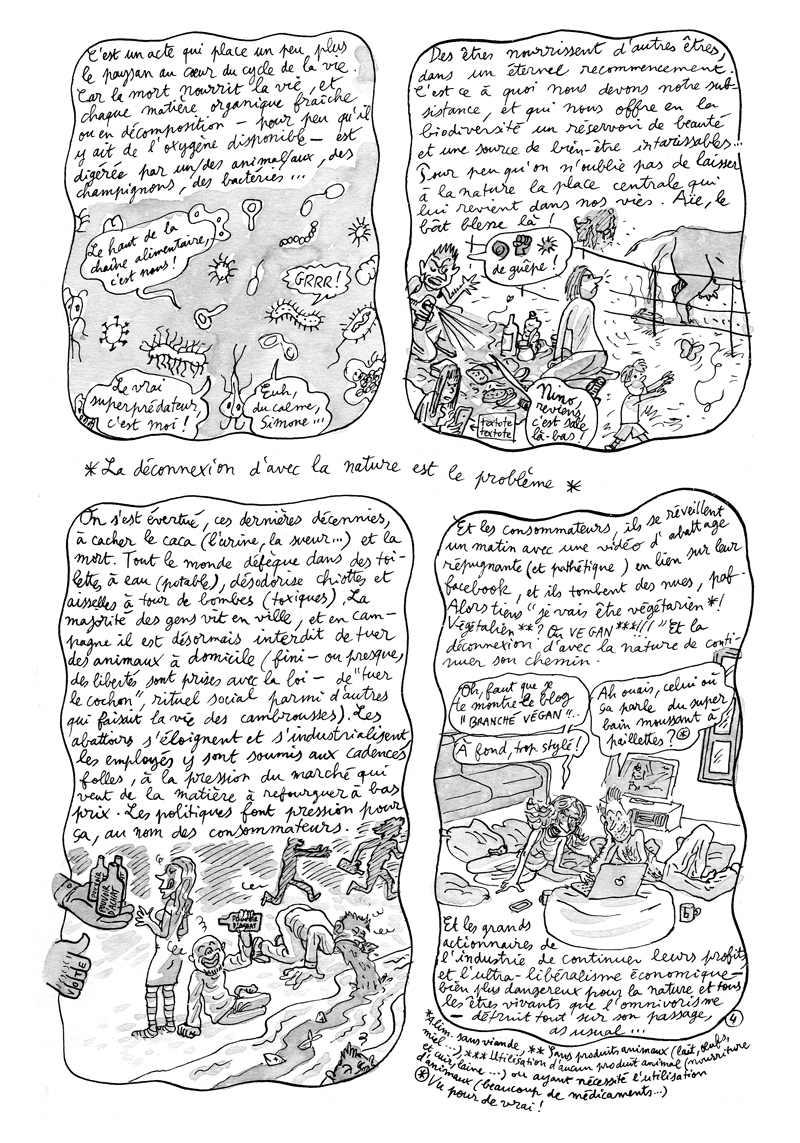 C'est un acte qui place un peu plus
le paysan au cœur du cycle de la vie.
Car la mort nourrit la vie, et
chaque matière organique fraîche
ou en décomposition – pour peu qu'il
y ait de l'oxygène disponible – est
digérée par un/des animal/aux, des
champignons, des bactéries...
Le haut de la
chaîne alimentaire,
c'est nous !
GRRR !
Le vrai
superprédateur,
c'est moi !
Euh,
du calme,
Simone...
Des êtres nourrissent d'autres êtres,
dans un éternel recommencement.
C'est ce à quoi nous devons notre sub-
sistance, et qui nous offre en la
biodiversité un réservoir de beauté
et une source de bien-être intarissables...
Pour peu qu'on n'oublie pas de laisser
à la nature la place centrale qui
lui revient dans nos vies. Aïe, le
bât blesse là !
de guêpe !
textote
textote
Nino,
reviens,
c'est sale
là-bas !
* La déconnexion d'avec la nature est le problème *
On s'est évertué, ces dernières décennies,
à cacher le caca (l'urine, la sueur...) et la
mort. Tout le monde défèque dans des toi-
lettes à eau (potable), désodorise chiottes et
aisselles à tour de bombes (toxiques). La
majorité des gens vit en ville, et en cam-
pagne il est désormais interdit de tuer
des animaux à domicile (fini – ou presque,
des libertés sont prises avec la loi – de "tuer
le cochon", rituel social parmi d'autres
qui faisait la vie des cambrousses). Les
abattoirs s'éloignent et s'industrialisent,
les employés y sont soumis aux cadences
folles, à la pression du marché qui
veut de la matière à refourguer à bas
prix. Les politiques font pression pour
ça, au nom des consommateurs.
POUVOIR
D'ACHAT
POUVOIR
D'ACHAT
VOTE
Et les consommateurs, ils se réveillent
un matin avec une vidéo d'abattage
répugnante (et pathétique) en lien sur leur
facebook, et ils tombent des nues, paf.
Alors tiens "je vais être végétarien*!
Végétalien**? Ou VEGAN***!!!" Et la
déconnexion d'avec la nature de conti-
nuer son chemin.
Oh, faut que je
te montre le blog
"BRANCHÉ VÉGAN"...
Ah ouais, celui où
ça parle du super
bain moussant à
paillettes ? *
À fond, trop stylé !
Et les grands
actionnaires de
l'industrie de continuer leurs profits
et l'ultra-libéralisme économique –
bien plus dangereux pour la nature et tous
les êtres vivants que l'omnivorisme
– détruit tout sur son passage,
as usual...
4
*Alim. sans viande, ** Sans produits animaux (lait, œufs,
miel...), *** Utilisation d'aucun produit animal (nourriture
et cuir, laine...) ou ayant nécessité l'utilisation
d'animaux (beaucoup de médicaments...)
* Vu pour de vrai !